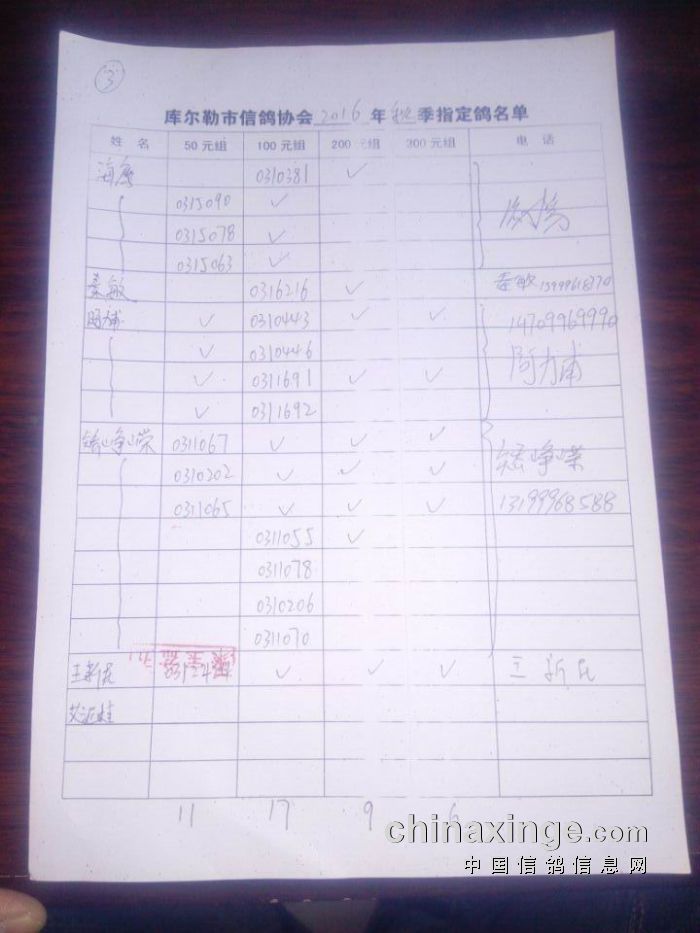 ③
库尔勒市信鸽协会2016年秋季指定鸽名单
姓 名 50元组 100元组 200元组 300元组 电 话
海鹰 0310381 ✓
0315090 ✓
0315078 ✓
0315063 ✓
秦敏 0316216 ✓ 秦敏
✓ 0310443 ✓ ✓ 14709969990
✓ 0310446
✓ 0311691 ✓ ✓ 阿力甫
✓ 0311692
峥嵘 0311067 ✓ ✓ ✓
0310202 ✓ ✓ ✓ 峥荣
0311065 ✓ ✓ ✓ 13199968588
0311055 ✓
0311078
0310206
0311070
王新民 ✓ ✓ ✓ 王新民
11 17 9 6
chinaxinge.com
中国信鸽信息网